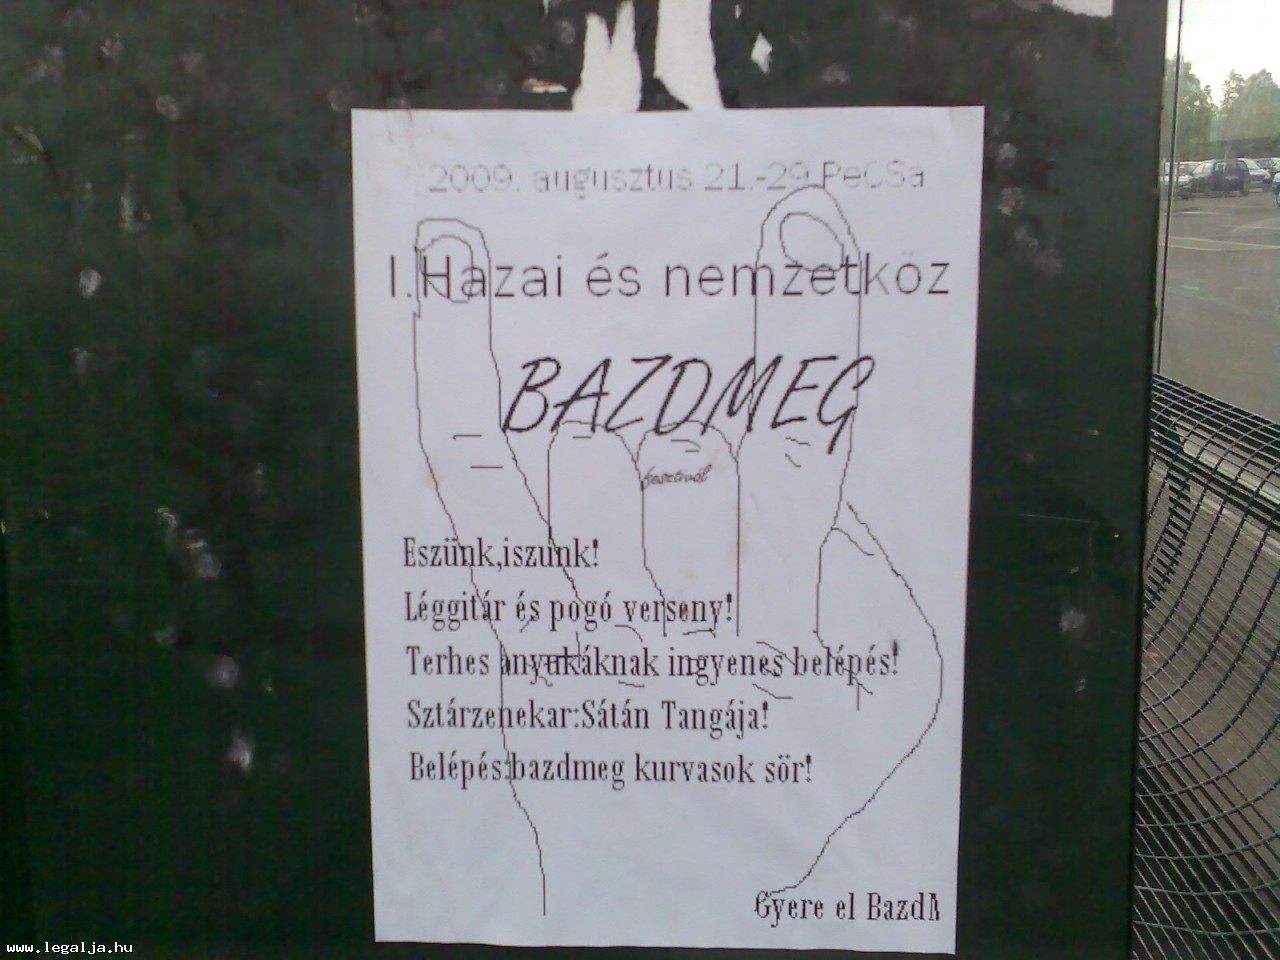 2009. augusztus 21.-29 PeCSa
I. Hazai és nemzetköz
BAZDMEG
fesztivál
Eszünk,iszunk!
Léggitár és pogó verseny!
Terhes anyukáknak ingyenes belépés!
Sztárzenekar:Sátán Tangája!
Belépés:bazdmeg kurvasok sör!
Gyere el BazdM
www.legalja.hu